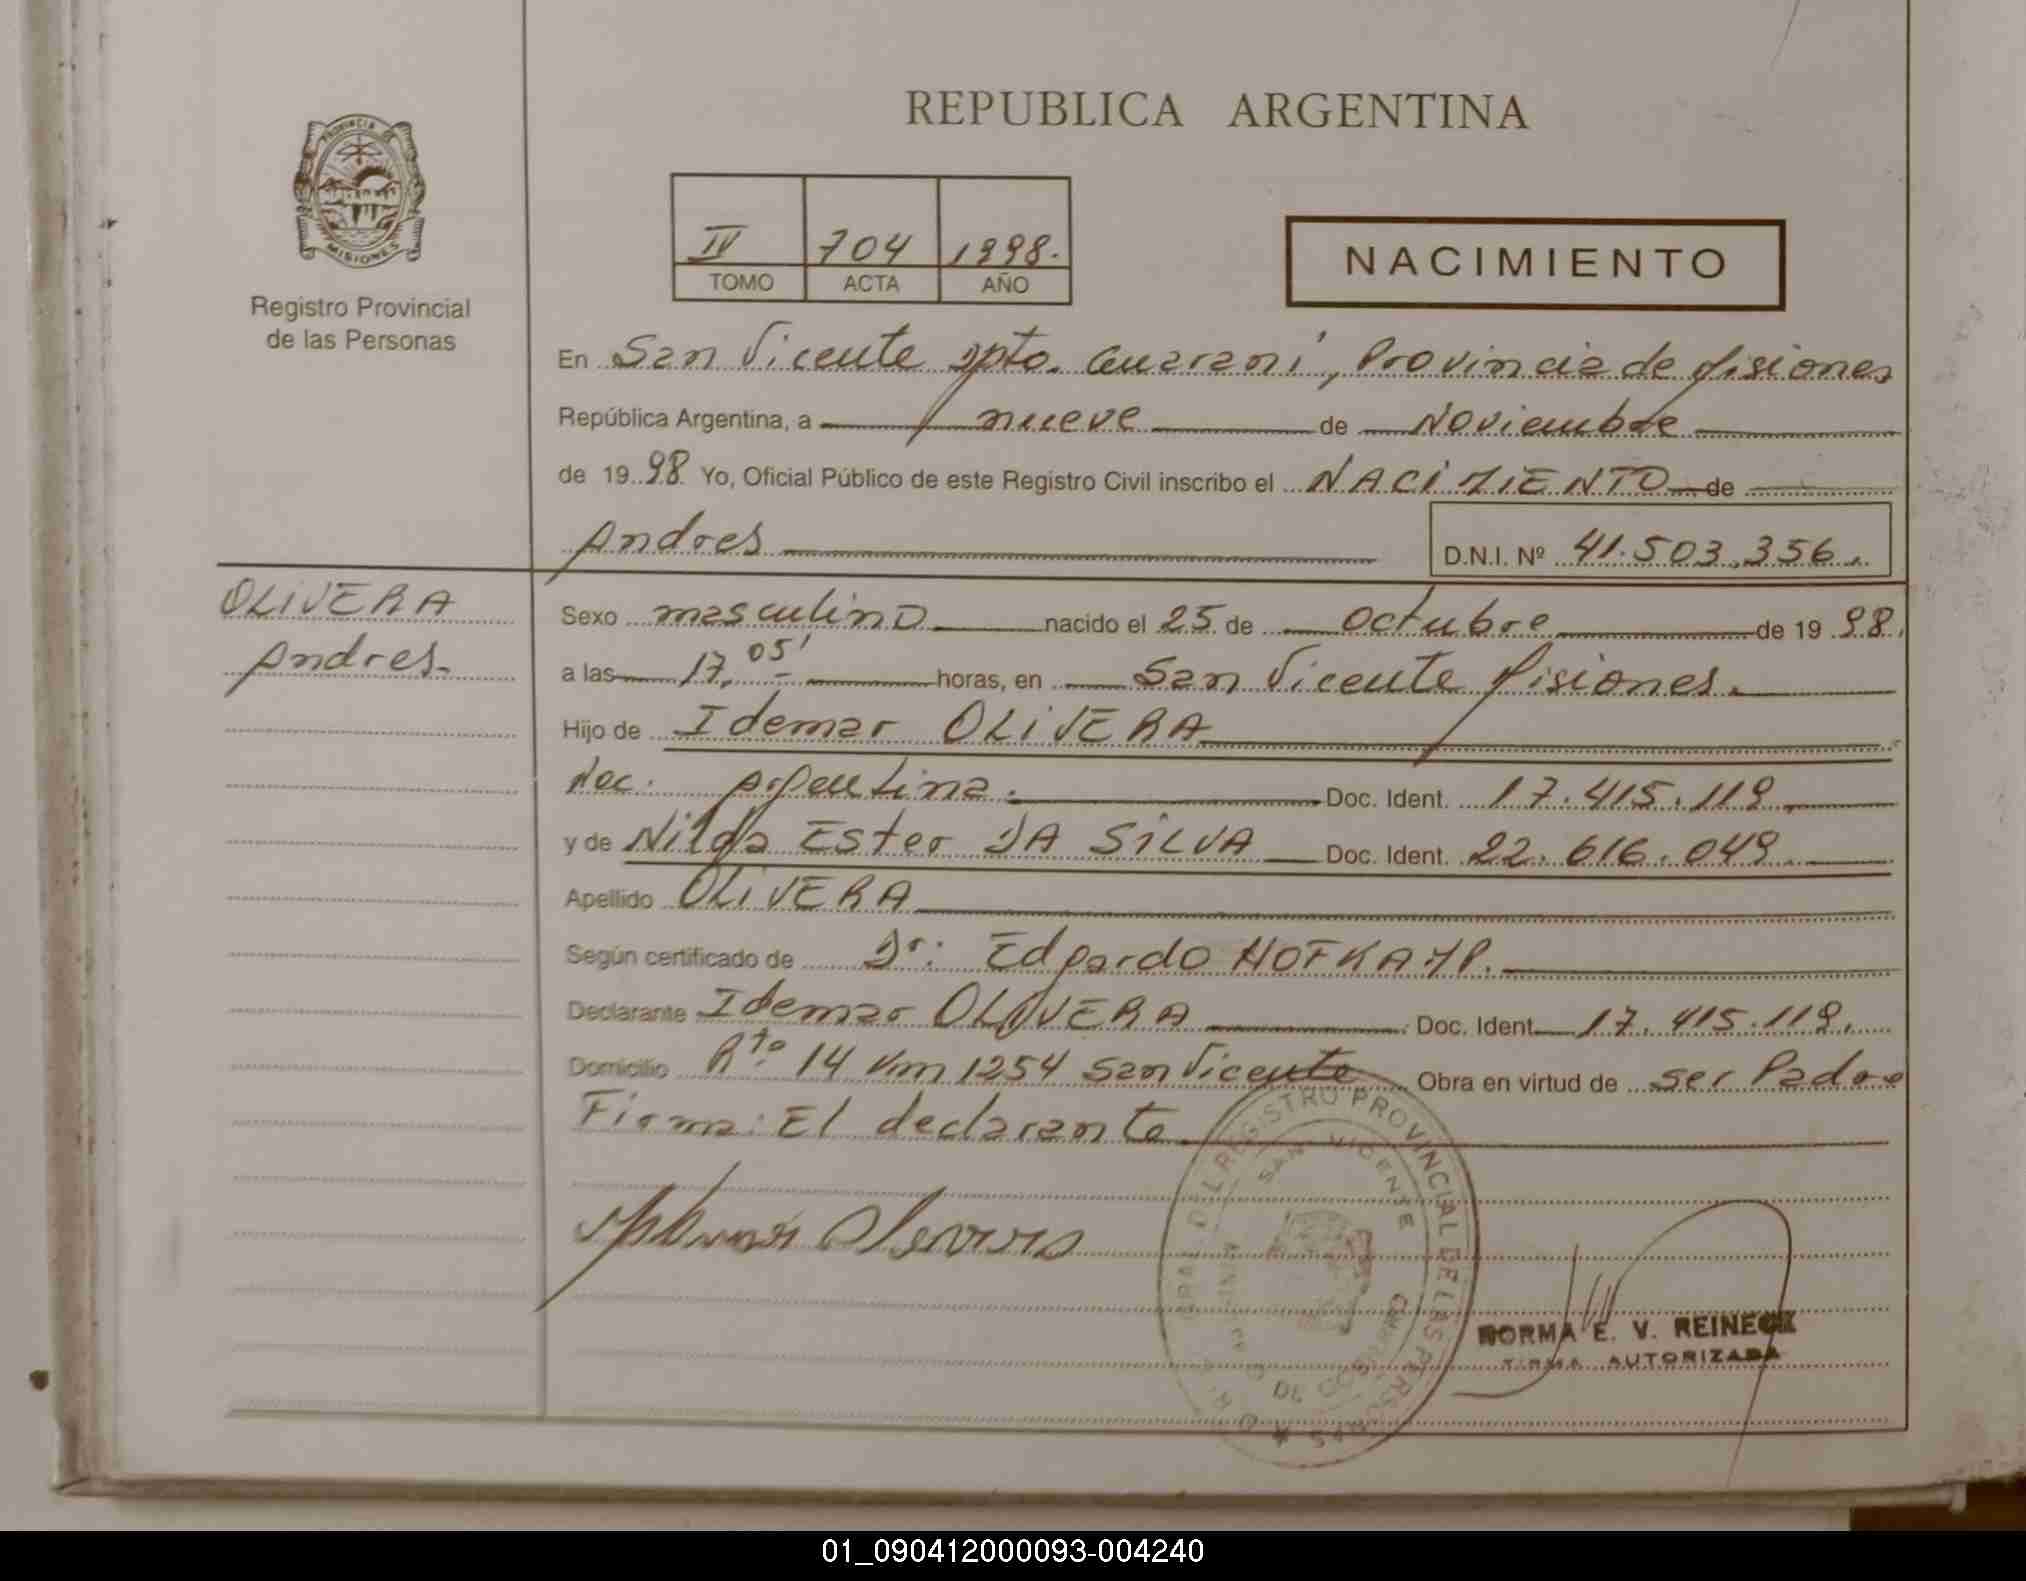 REPUBLICA ARGENTINA
PROVINCIA DE
MISIONES
Registro Provincial
de las Personas
IV 704 1998.
TOMO ACTA AÑO
NACIMIENTO
En San Vicente Dpto. Guaraní, Provincia de Misiones
República Argentina, a nueve de Noviembre
de 1998 Yo, Oficial Público de este Registro Civil inscribo el NACIMIENTO de
Andres D.N.I. Nº 41.503.356.
OLIVERA
Andres.
Sexo masculino nacido el 25 de Octubre de 1998.
a las 17,05' horas, en San Vicente Misiones.
Hijo de Idemar OLIVERA
Nac. Argentina. Doc. Ident. 17.415.119
y de Nilda Ester DA SILVA Doc. Ident. 22.616.049.
Apellido OLIVERA
Según certificado de Dr: Edgardo HOFKAMP.
Declarante Idemar OLIVERA Doc. Ident. 17.415.119.
Domicilio Rta 14 Km 1254 San Vicente Obra en virtud de ser Padre
Firma: El declarante
REGISTRO PROVINCIAL DE LAS PERSONAS
SAN VICENTE
NORMA E. V. REINECK
FIRMA AUTORIZADA
01_090412000093-004240